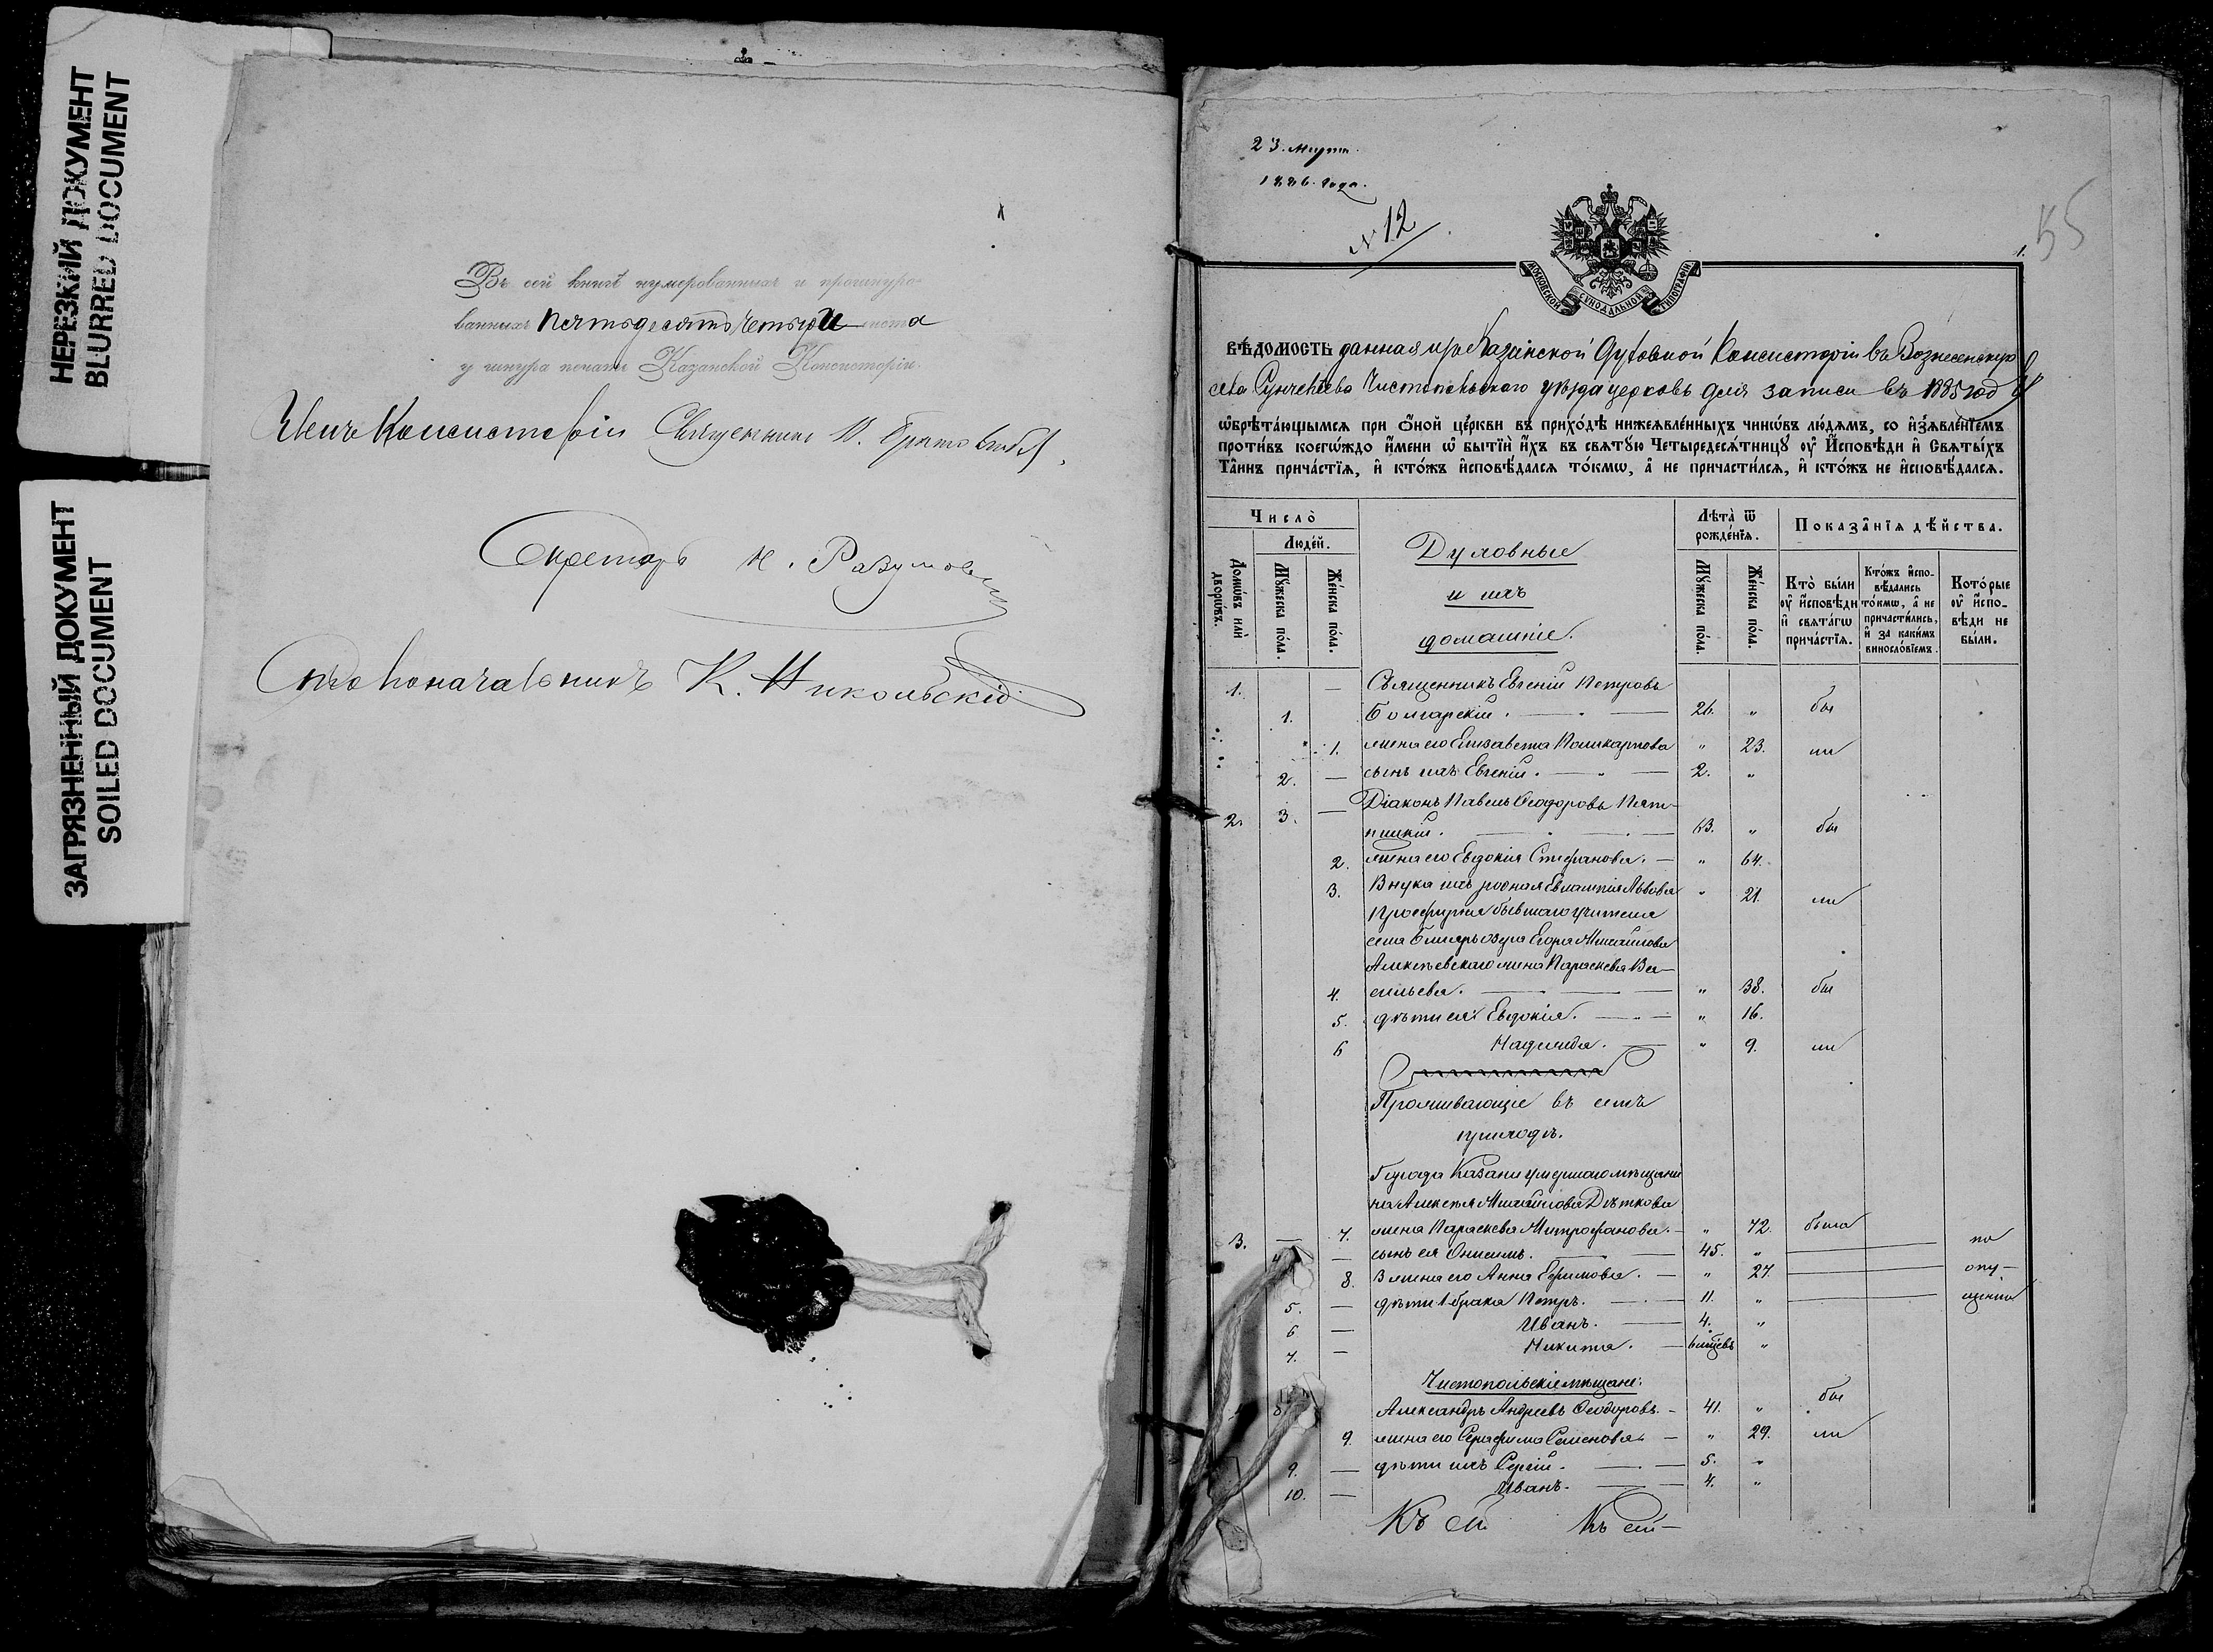 НЕРЕЗКИЙ ДОКУМЕНТ
BLURRED DOCUMENT
ЗАГРЯЗНЕННЫЙ ДОКУМЕНТ
SOILED DOCUMENT
Въ сей книгѣ нумерованныхъ и прошнуро-
ванныхъ пятьдесятъ четыре листа
у шнура печать Казанской Консисторіи.
Членъ Консисторіи Священникъ
Секретарь Н. Разумовъ
Столоначальникъ К. Никольскій
23. Марта.
1886. года.
N 12
55
1.
МОСКОВСКОЙ СѴНОДАЛЬНОЙ ТИПОГРАФІИ
ВѢДОМОСТЬ данная изъ Казанской Духовной Консисторіи въ Вознесенскую
села Сунчелеева Чистопольскаго уѣзда церковь для записи въ 1885 год
ѡ҆брѣта́ющымсѧ при ѻ҆́ной це́ркви въ прихо́дѣ нижеѧвле́нныхъ чинѡ́въ лю́дѧмъ, со и҆з̾ѧвле́нїемъ
проти́въ коегѡ́ждо и҆́мени ѡ҆ бытїѝ и҆́хъ въ свѧтꙋ́ю Четыредесѧ́тницꙋ ᲂу҆ И҆сповѣ́ди и҆ Свѧты́хъ
Та̑инъ прича́стїѧ, и҆ кто́жъ и҆сповѣ́далсѧ то́кмѡ, а҆ не причасти́лсѧ, и҆ кто́жъ не и҆сповѣ́далсѧ.
Число̀
Людє́й.
Домѡ́въ и҆лѝ дворѡ́въ.
Мꙋ́жеска по́ла.
Же́нска по́ла.
Духовные
и ихъ
домашніе.
Лѣта̀ ѿ рожде́нїѧ.
Мꙋ́жеска по́ла.
Же́нска по́ла.
Показа̑нїѧ дѣ́йства.
Кто̀ бы́ли ᲂу҆ и҆сповѣ́ди и҆ свѧта́гѡ прича́стїѧ.
Кто́жъ и҆спо-вѣ́дались то́кмѡ, а҆ не причасти́лись, и҆ за каки́мъ виносло́вїемъ.
Кото́рые ᲂу҆ и҆спо-вѣ́ди не бы́ли.
1. — Священникъ Евгеній Петровъ
1. Болгарскій. — 26. „ бы
1. жена его Елизавета Поликарпова „ 23. ли
2. — сынъ ихъ Евгеній. — „ — 2. „
2. 3. — Діаконъ Павелъ Ѳеодоровъ Пят-
ницкій. — 63. „ бы
2. жена его Евдокія Стефанова. — „ 64.
3. Внука ихъ родная Евлампія Львова „ 21. ли
Просфирня бывшаго учителя
села Биляръ озера Егора Михайлова
Алексѣевскаго жена Параскева Ва-
4. сильева. — „ 38. бы
5. дѣти ея: Евдокія. — „ 16.
6 Надежда. — „ 9. ли
Проживающіе въ семъ
приходѣ.
Города Казани умершаго мѣщани
на Алексѣя Михайлова Дѣткова
3. — 7. жена Параскева Митрофанова. — „ 72. была
4 — сынъ ея Онисимъ. — 45. „ — по
8. 3 жена его Анна Ефимова. — „ 27. — опу-
5. — дѣти 1 брака Петръ. — 11. „ — щенію
6 — Иванъ. — 4. „
7. — Никита. — „
Чистопольскіе мѣщане:
8. Александръ Андреевъ Ѳеодоровъ. — 41. „ бы
9. жена его Серафима Семенова. — „ 29. ли
9. — дѣти ихъ Сергій. — 5. „
10. — Иванъ. — 4. „
Къ сей Къ сей-